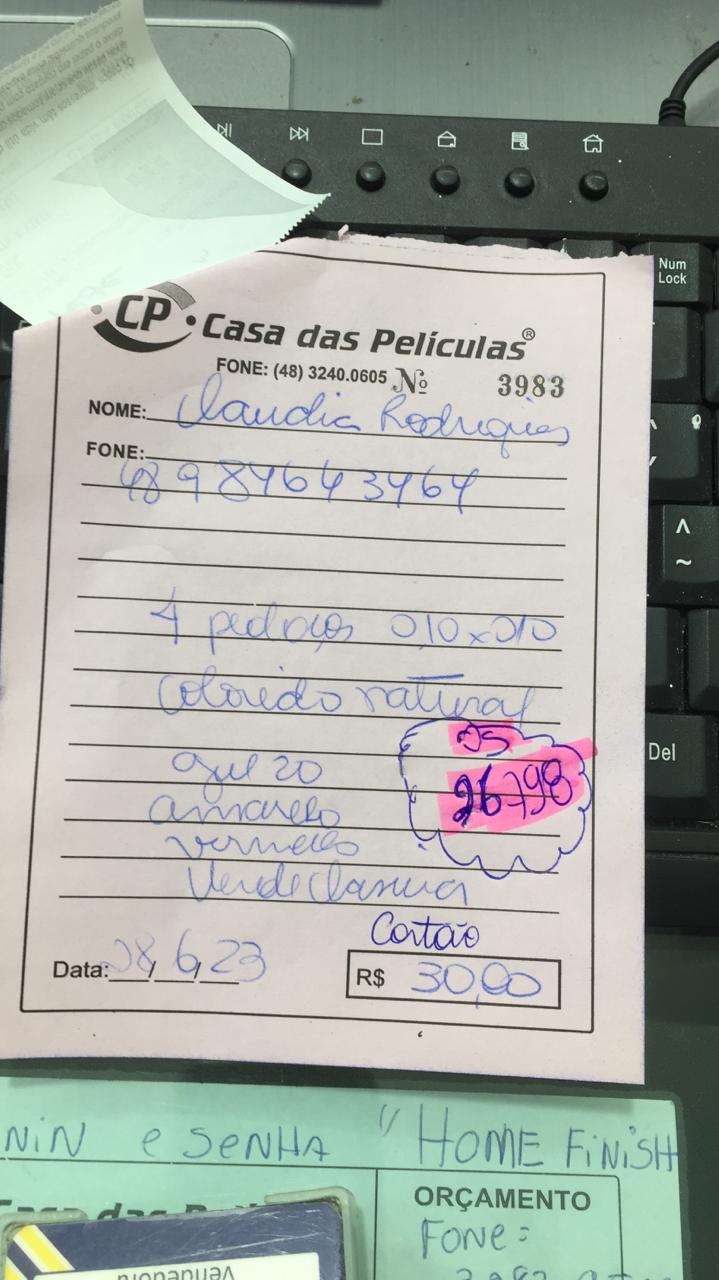 CP Casa das Películas®
FONE: (48) 3240.0605 Nº 3983
NOME: Claudia Rodrigues
FONE:
48 984643464
4 pedaços 0,10x010
colorido natural
OS
azul 20
26798
amarelo
vermelho
Verde
Cartão
Data: 28/6/23 R$ 30,00
e SENHA "HOME FiNiSH
Casa das
ORÇAMENTO
FONE:
Vendedora
Num
Lock
Del